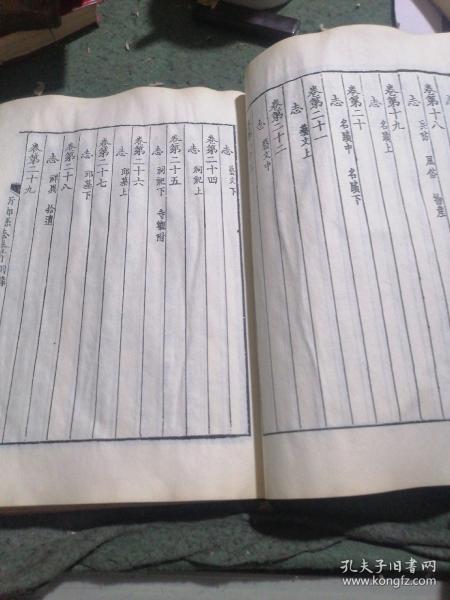 志
卷第十八
志 兵防 風俗 物產
卷第十九
志 名蹟上
卷第二十
志 名蹟中 名蹟下
卷第二十一
志 藝文上
卷第二十二
志 藝文中
志 藝文下
卷第二十四
志 祠祀上
卷第二十五
志 祠祀下 寺觀附
卷第二十六
志 邱墓上
卷第二十七
志 邱墓下
卷第二十八
志 祥異 拾遺
卷第二十九
孔夫子旧书网
www.kongfz.com